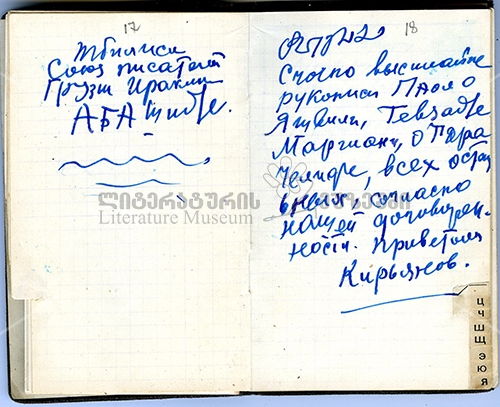 17
Тбилиси
Союз писателей
Грузии Иракли
Абашидзе.
18
Срочно высылайте
рукописи Паоло
Яшвили, Гевзадзе
Маргиани, о Пира
челидзе, всех остал
ьных, согласно
нашей договорен-
ности. Приветом
Кирьянов.
ლიტერატურის მუზეუმი
Literature Museum
ц
ч
ш
щ
э
ю
я